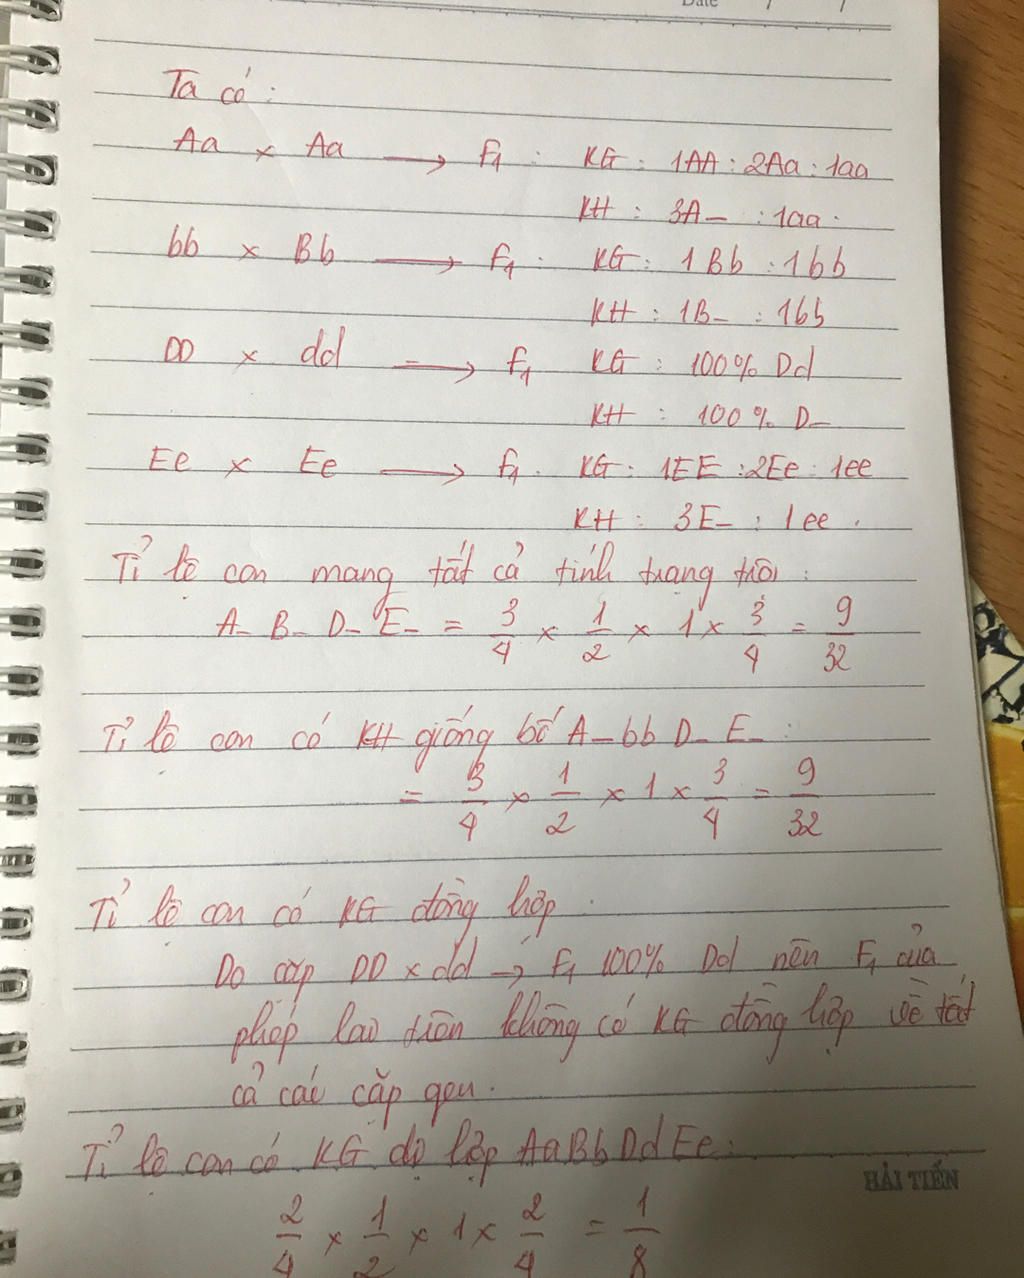 Date / /
Ta có:
Aa × Aa → F1: KG: 1AA : 2Aa : 1aa
KH : 3A_ : 1aa.
bb × Bb → F1: KG: 1Bb : 1bb
KH : 1B_ : 1bb
DD × dd → F1 KG : 100% Dd
KH : 100% D_
Ee × Ee → F1. KG: 1EE : 2Ee : 1ee
KH : 3E_ : 1ee.
Tỉ lệ con mang tất cả tính trạng trội:
A_ B_ D_ E_ = 3/4 × 1/2 × 1 × 3/4 = 9/32
Tỉ lệ con có KH giống bố A_bb D_ E_ :
= 3/4 × 1/2 × 1 × 3/4 = 9/32
Tỉ lệ con có KG đồng hợp.
Do cặp DD × dd → F1 100% Dd nên F1 của
phép lai trên không có KG đồng hợp về tất
cả các cặp gen.
Tỉ lệ con có KG dị hợp AaBbDdEe:
HẢI TIẾN
2/4 × 1/2 × 1 × 2/4 = 1/8